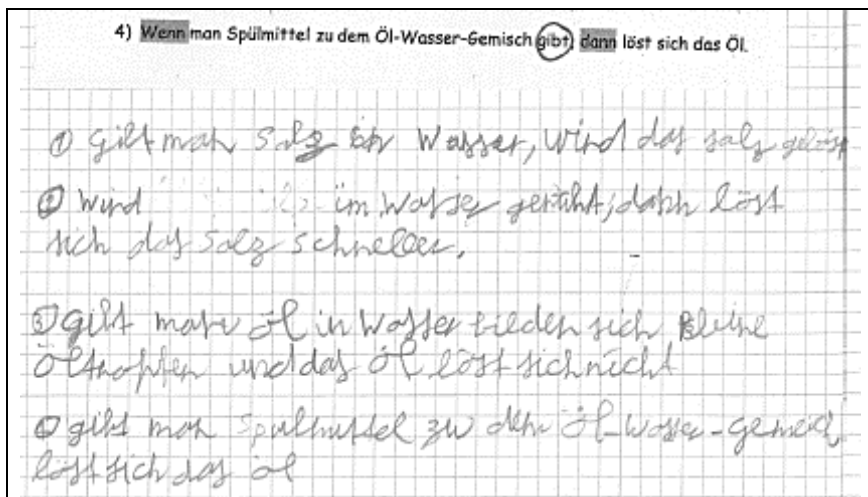 4) Wenn man Spülmittel zu dem Öl-Wasser-Gemisch gibt, dann löst sich das Öl.
① Gibt man Salz in Wasser, wird das salz gelöst
② Wird im Wasser gerührt, dann löst
sich das Salz schneller.
③ gibt man öl in Wasser bilden sich kleine
Öltropfen und das öl löst sich nicht
④ gibt man Spülmittel zu dem öl-Wasser-gemisch,
löst sich das öl